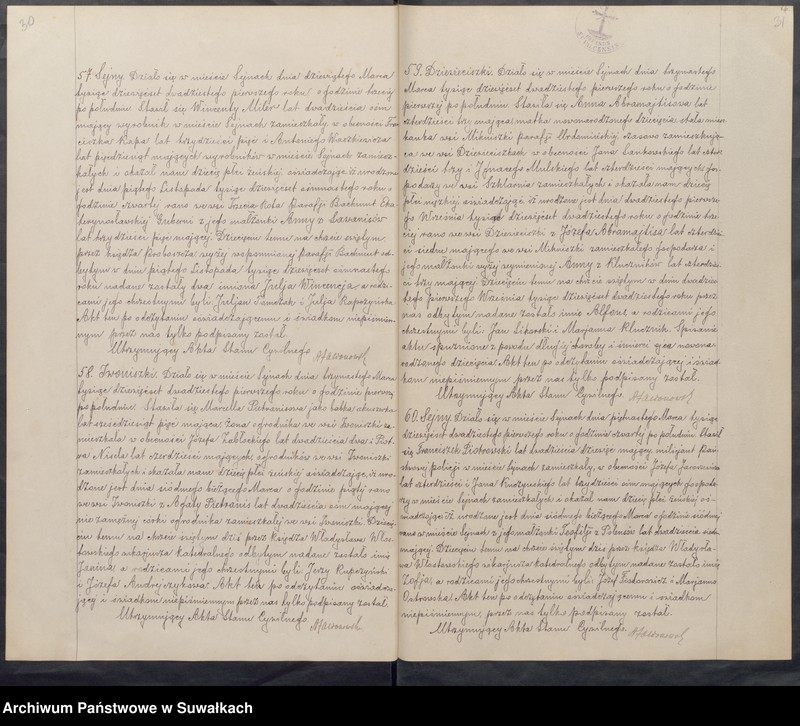 30
57. Sejny. Działo się w mieście Sejnach dnia dziewiątego Marca
tysiąc dziewięćset dwudziestego pierwszego roku o godzinie trzeciej
po południu Stawił się Wincenty Miler lat dwadzieścia ośm
mający wyrobnik w mieście Sejnach zamieszkały, w obecności Fran
ciszka Kapa lat trzydzieści pięć i Antoniego Waszkiewicza
lat pięćdziesiąt mających wyrobników w mieście Sejnach zamiesz-
kałych i okazał nam dziecię płci żeńskiej oświadczając iż urodzone
jest dnia piątego Listopada tysiąc dziewięćset siemnastego roku o
godzinie czwartej rano we wsi parafji Bachmut Eka
terynosławskiej Gubernii z jego małżonki Anny z
lat trzydzieści pięć mającej. Dziecięciu temu na chrzcie świętym
przez księdza Proboszcza wyżej wspomnianej parafji Bachmut od-
bytym w dniu piątego Listopada tysiąc dziewięćset siemnastego
roku nadane zostały dwa imiona Julja Wincencja, a rodzi-
cami jego chrzestnymi byli: Juljan Tomczak i Julja
Akt ten po odczytaniu oświadczającemu i świadkom niepiśmien-
nym przez nas tylko podpisany został
Utrzymujący Akta Stanu Cywilnego
58. Iwoniszki. Działo się w mieście Sejnach dnia trzynastego Marca
tysiąc dziewięćset dwudziestego pierwszego roku o godzinie pierwszej
po południu Stawiła się Marcella Pietranisowa jako babka akuszerka
lat sześćdziesiąt pięć mająca, żona ogrodnika we wsi Iwoniszki za-
mieszkała w obecności Józefa Zabłockiego lat dwadzieścia dwa i Piot-
ra Niecha lat czterdzieści mających, ogrodników we wsi Iwoniszki
zamieszkałych i okazała nam dziecię płci żeńskiej oświadczając, iż uro-
dzone jest dnia siódmego bieżącego Marca o godzinie piątej rano
we wsi Iwoniszki z Agaty Pietranis lat dwadzieścia ośm mającej
niezamężnej córki ogrodnika zamieszkałej we wsi Iwoniszki. Dziecię-
ciu temu na chrzcie świętym dziś przez księdza Władysława Wło-
stowskiego wikarjusza katedralnego odbytym nadane zostało imię
Janina, a rodzicami jego chrzestnymi byli: Jerzy
i Józefa Andrejczykowa. Akt ten po odczytaniu oświadcza-
jącej i świadkom niepiśmiennym przez nas tylko podpisany został.
Utrzymujący Akta Stanu Cywilnego
31
59. Dziewieciszki. Działo się w mieście Sejnach dnia trzynastego
Marca tysiąc dziewięćset dwudziestego pierwszego roku o godzinie
pierwszej po południu Stawiła się Anna Abramajtisowa lat
czterdzieści trzy mająca, matka nowonarodzonego dziecięcia, stała miesz-
kanka wsi Mikniszki parafji, czasowo zamieszkują-
ca we wsi Dziewieciszkach w obecności Jana Sankowskiego lat czter-
dzieści trzy i Ignacego Mulskiego lat czterdzieści mających gos-
podarzy we wsi Szklarnia zamieszkałych i okazała nam dziecię
płci męzkiej oświadczając, iż urodzone jest dnia dwudziestego pierwsze-
go Września tysiąc dziewięćset dwudziestego roku o godzinie trze-
ciej rano we wsi Dziewieciszki z Józefa Abramajtisa lat czterdzie-
ści siedm mającego we wsi Mikniszki zamieszkałego gospodarza i
jego małżonki wyżej wymienionej Anny z Kluczników lat czterdzieś-
ci trzy mającej. Dziecięciu temu na chrzcie świętym w dniu dwudzies-
tego pierwszego Września tysiąc dziewięćset dwudziestego roku przez
nas odbytym nadane zostało imię Alfons, a rodzicami jego
chrzestnymi byli: Jan Sikorski i Marjanna Klucznik. Spisanie
aktu spóźnione z powodu długiej choroby i śmierci ojca nowona-
rodzonego dziecięcia. Akt ten po odczytaniu oświadczającej i świad-
kom niepiśmiennym przez nas tylko podpisany został.
Utrzymujący Akta Stanu Cywilnego
60. Sejny. Działo się w mieście Sejnach dnia piętnastego Marca tysiąc
dziewięćset dwudziestego pierwszego roku o godzinie czwartej po południu Stawił
się Franciszek Piotrowski lat dwadzieścia dziewięć mający milicjant Pań
stwowej policji w mieście Sejnach zamieszkały, w obecności Józefa
lat czterdzieści i Jana Kuczyńskiego lat trzydzieści ośm mających gospoda-
rzy w mieście Sejnach zamieszkałych i okazał nam dziecię płci żeńskiej oś-
wiadczając iż urodzone jest dnia siódmego bieżącego Marca o godzinie siódmej
rano w mieście Sejnach z jego małżonki Teofilji z lat dwadzieścia siedm
mającej. Dziecięciu temu na chrzcie świętym dziś przez księdza Władysła-
wa Włostowskiego wikarjusza katedralnego odbytym nadane zostało imię
Zofja, a rodzicami jego chrzestnymi byli: Józef Fiedorowicz i Marjanna
Ostrowska. Akt ten po odczytaniu oświadczającemu i świadkom
niepiśmiennym, przez nas tylko podpisany został.
Utrzymujący Akta Stanu Cywilnego
Archiwum Państwowe w Suwałkach